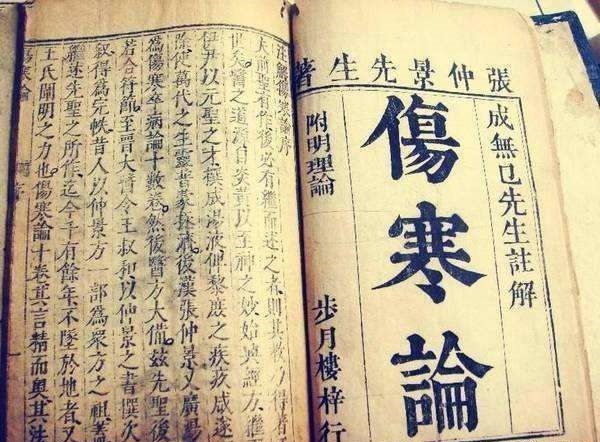 張仲景先生著
成無已先生註解
傷寒論
附明理論
步月樓梓行
注解傷寒論序
夫前聖有作後必有繼而述之者則其教乃得著
世矣醫之道源自炎黃以至神之妙始興經方
伊尹以元聖之才撰成湯液俾黎庶之疾疢咸遂
除使萬代之生靈普蒙拯濟後漢張仲景又廣湯
為傷寒卒病論十數卷然後醫方大備茲先聖後
若合符節至晉太醫令王叔和以仲景之書撰次
叙得為完帙昔人以仲景方一部為衆方之祖蓋
繼述先聖之所作迄今千有餘年不墜於地者又
王氏闡明之力也傷寒論十卷其言精而奧其法
傷寒論